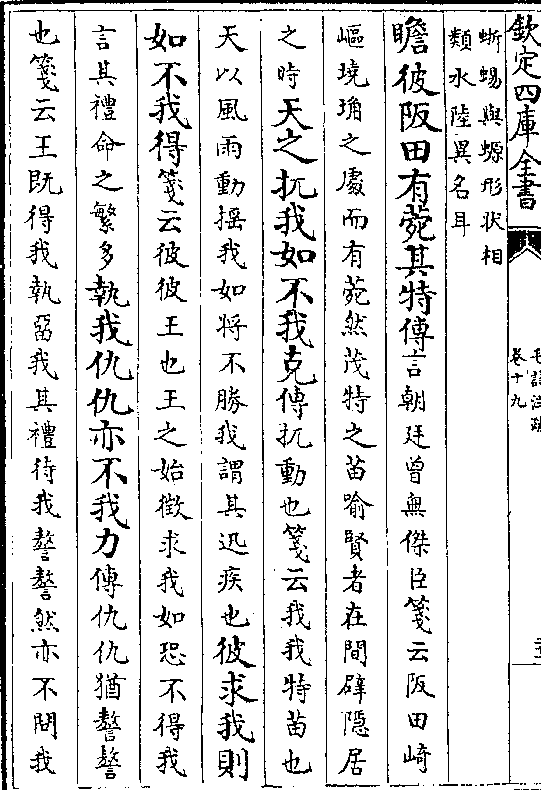 欽定四庫全書
毛詩注疏
卷十九
蜥蜴與螈形狀相
類水陸異名耳
瞻彼阪田有菀其特傳言朝廷曾無傑臣箋云阪田崎
嶇墝埆之處而有菀然茂特之苗喻賢者在間辟隱居
之時天之扤我如不我克傳扤動也箋云我我特苗也
天以風雨動揺我如將不勝我謂其迅疾也彼求我則
如不我得箋云彼彼王也王之始徵求我如恐不得我
言其禮命之繁多執我仇仇亦不我力傳仇仇猶謷謷
也箋云王既得我執留我其禮待我謷謷然亦不問我